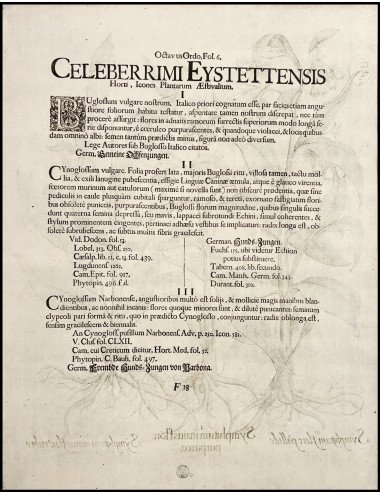 Octavus Ordo, Fol. 6.
CELEBERRIMI EYSTETTENSIS
Horti, Icones Plantarum Æstivalium.
I
BUglossum vulgare nostrum, Italico priori cognatum esse, par facies etiam angu-
stiore foliorum habitu testatur, asperitate tamen nostrum discrepat, nec tam
procerè assurgit: flores in adnatis ramorum surrectis superiorum modo longâ se-
rie disponuntur, è cæruleo purpurascentes, & quandoque violacei, & locis quibus-
dam omninò albi: semen tantùm prædictis minus, figurâ non adeò diversum.
Lege Autores sub Buglosso Italico citatos.
Germ. Gemeine Ochsenzungen.
II
CYnoglossum vulgare. Folia profert lata, majoris Buglossi ritu, villosa tamen, tactu mol-
lia, & exili lanugine pubescentia, effigie Linguæ Caninæ æmula, atque è glauco virentia,
fœtorem murinum aut catulorum (maximè si novella sint) non obscurè prodentia, quæ fine
pediculis in caule plusquam cubitali sparguntur, ramoso, & tereti, exornato fastigiatim flori-
bus obsoletè puniceis vel purpurascentibus, Buglossi florum magnitudine, quibus singulis succe-
dunt quaterna semina depressa, seu mavis, lappacei subrotundi Echini, simul coherentes, &
stylum prominentem cingentes, pertinaci adhæsu vestibus se implicatura: radix longa est, ob-
soletè subrufescens, ac subtus multis fibris gracilescit.
Vid. Dodon. fol. 53.
Lobel. 313. Obs. 290.
Cæsalp. lib. 11. c. 13. fol. 439.
Lugdunens. 1262.
Cam. Epit. fol. 917.
Phytopin. 496. f. 2.
German. Hunds-Zungen.
Fuchs. 155. ubi videtur Echion
potius substituere,
Tabern. 406. lib. secundo.
Cam. Matth. Germ. fol. 343.
Durant. fol. 310.
III
CYnoglossum Narbonense, angustioribus multò est folijs, & mollicie magis manibus blan-
dientibus, ac nonnihil incanis: flores quoque minores sunt, & dilutè punicantes: seminum
clypeoli pari formâ & ritu, quo in prædicto Cynoglosso, conjunguntur: radix oblonga est,
sensim gracilescens & biennalis.
An Cynogloss. pusillum Narbonens. Adv. p. 250. Icon. 581.
V. Clus. fol. CLXII.
Cam. cui Creticum dicitur, Hort. Med. fol. 52.
Phytopin. C. Bauh. fol. 497.
Germ. Frembde Hunds-Zungen von Narbona.
F 18
Symphitum flore pallido
Symphitum maius flore
purpureo.